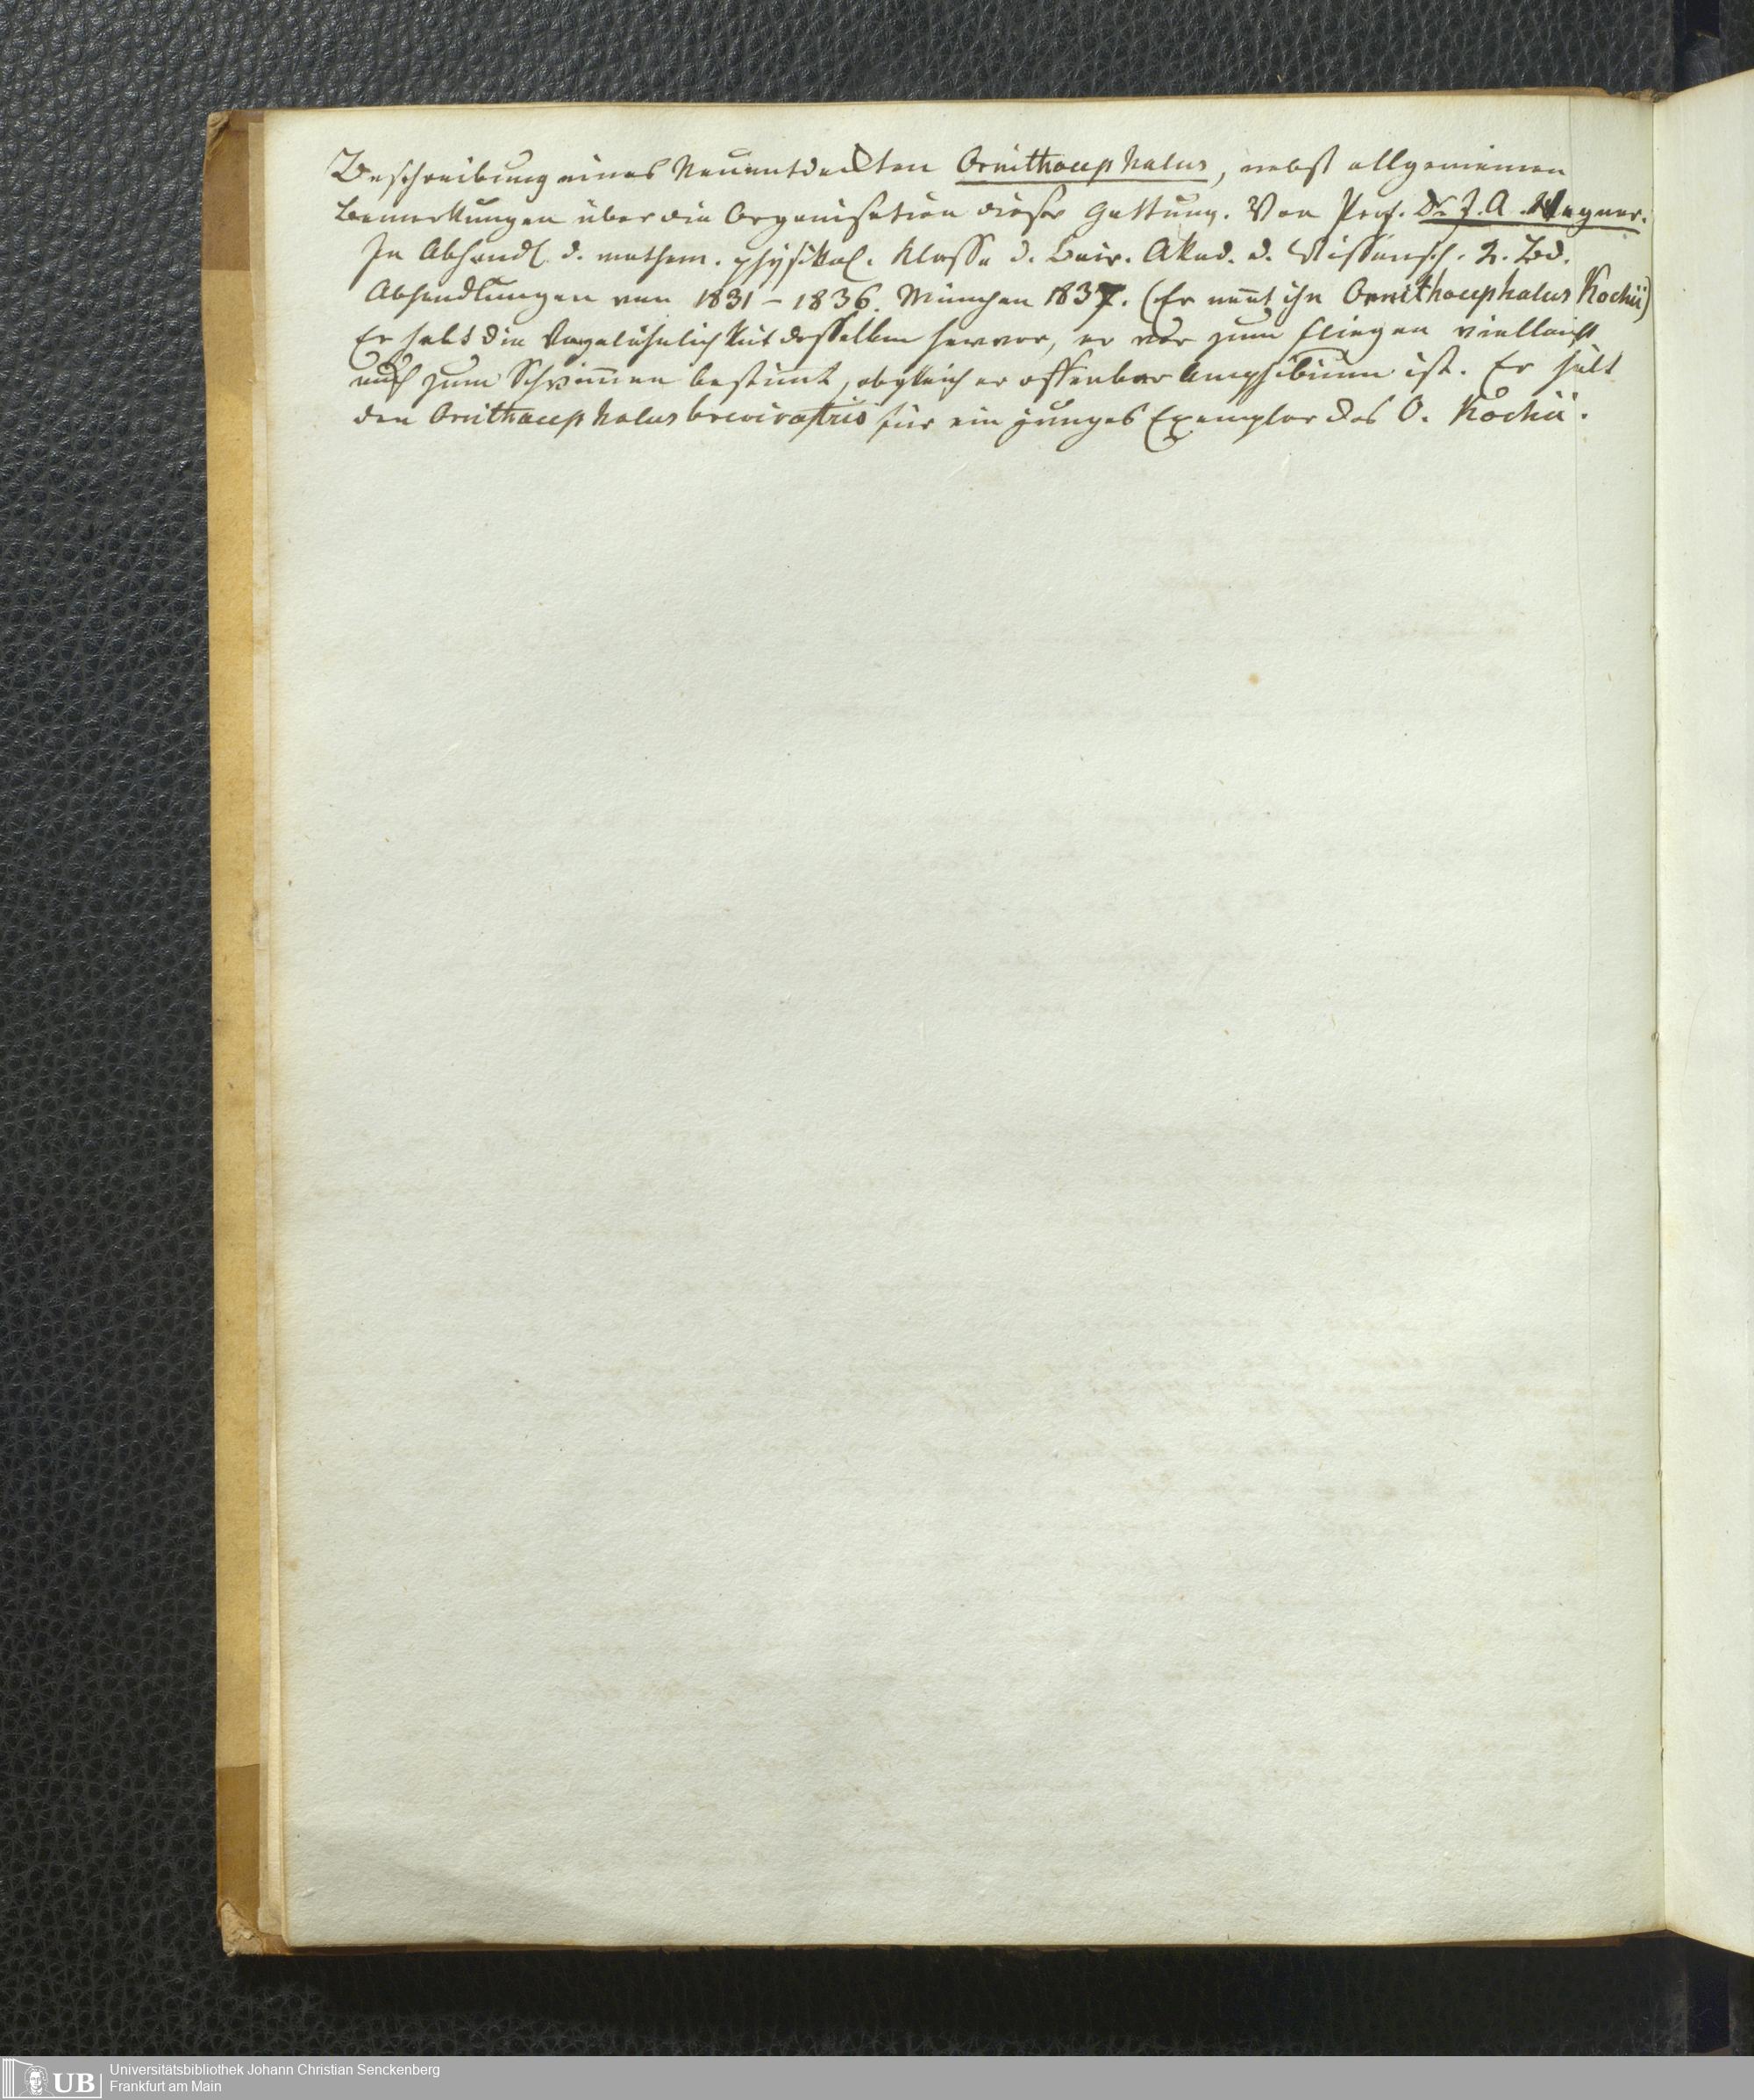 Beschreibung eines Neuentdeckten Ornithocephalus, nebst allgemeinen
Bemerkungen über die Organisation dieser Gattung. Von Prof. Dr. J. A. Wagner.
In Abhandl. d. mathem. physikal. Klasse d. Bair. Akad. d. Wissensch. 2. Bd.
Abhandlungen von 1831 - 1836. München 1837. (Er nennt ihn Ornithocephalus Kochii)
Er hebt die Vogelähnlichkeit desselben hervor, er war zum fliegen vielleicht
auch zum Schwimmen bestimmt, obgleich er offenbar Amphibium ist. Er hält
den Ornithocephalus brevirostris für ein junges Exemplar des O. Kochii.
UB Universitätsbibliothek Johann Christian Senckenberg
Frankfurt am Main